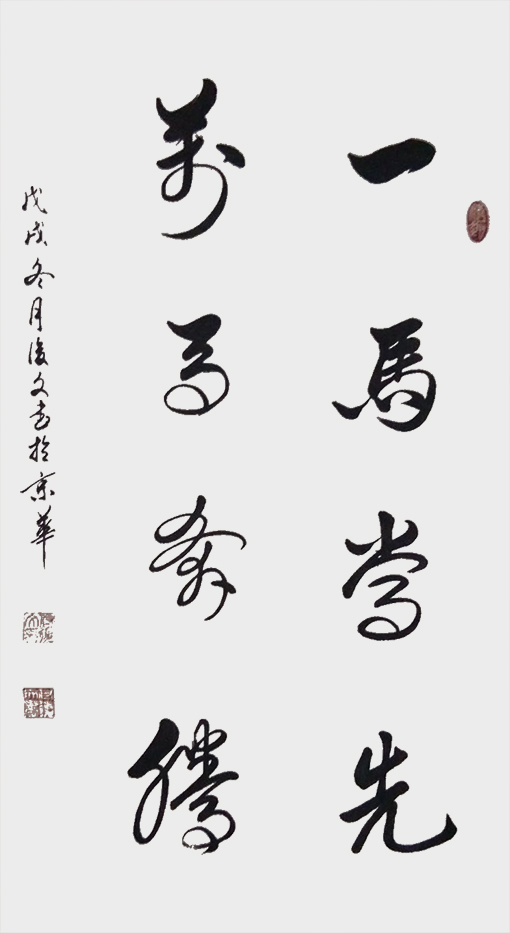 一馬當先
萬馬奔騰
戊戌冬月俊文書於京華